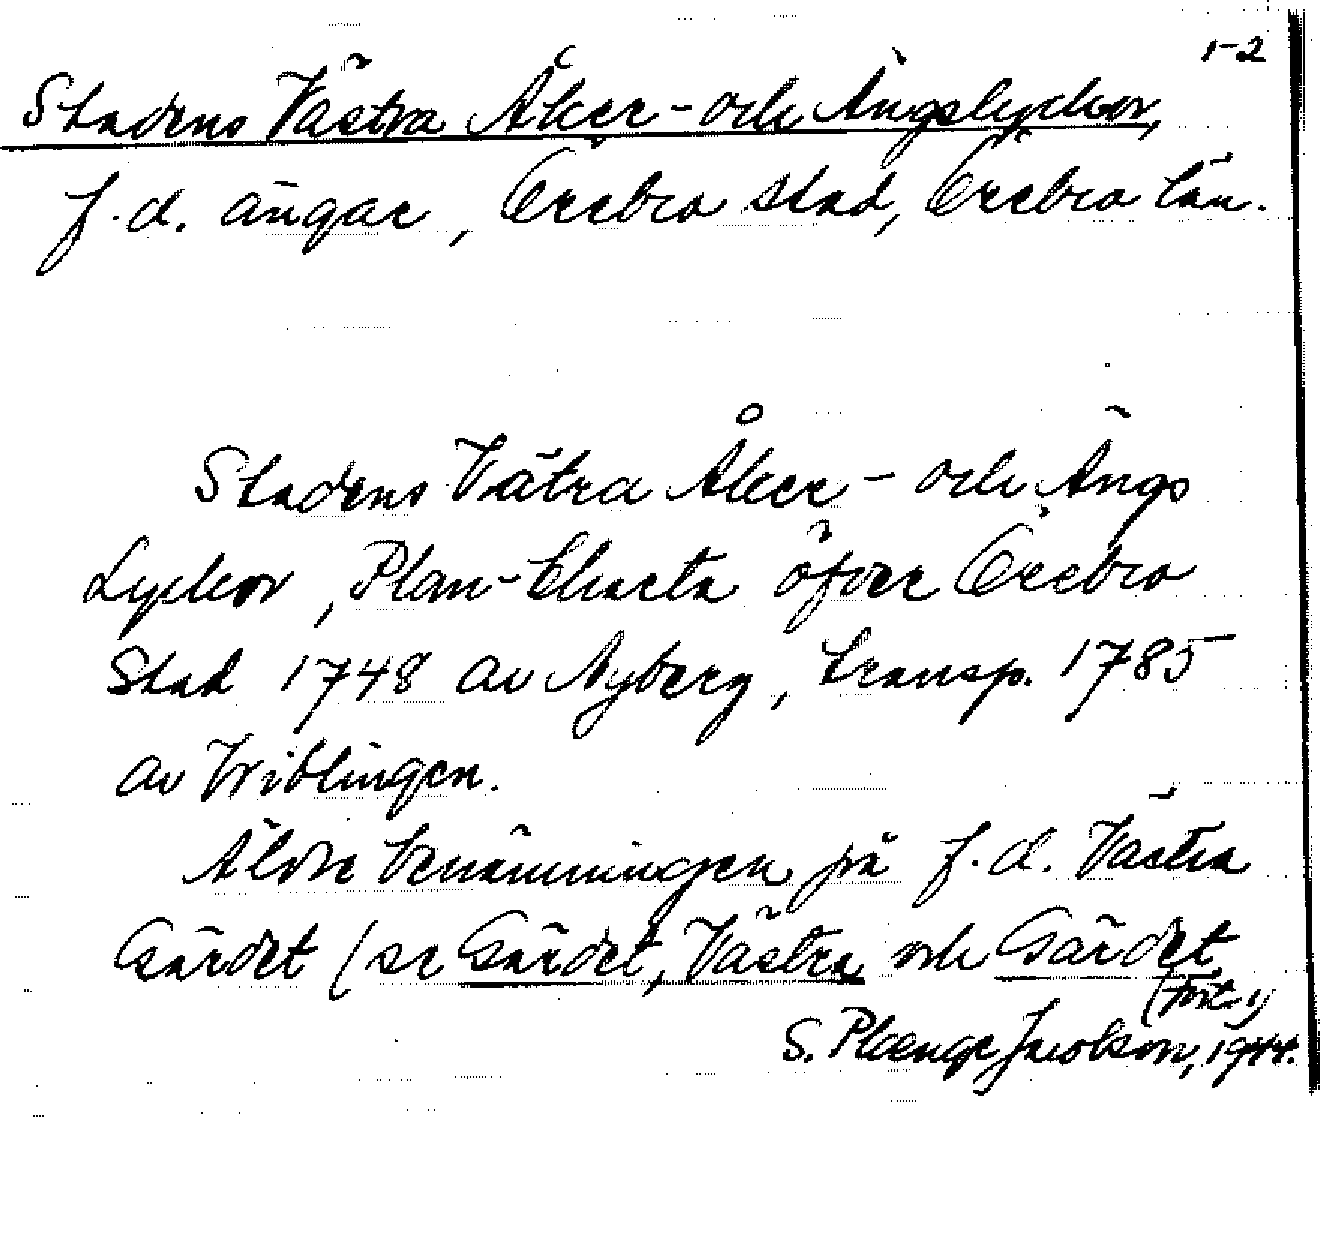 1-2
Stadens Västra Åker- och Ängslyckor,
f.d. ängar, Örebro stad, Örebro län.
Stadens Vätra Åker- och Ängs
Lyckor, Plan-Charta öfver Örebro
Stad 1748 av Nyberg, transp. 1785
av Wiblingen.
Äldre benämningen på f.d. Västra
Gärdet (se Gärdet, Västra och Gärdet
(forts.)
S. Plænge Jacobson, 1944.